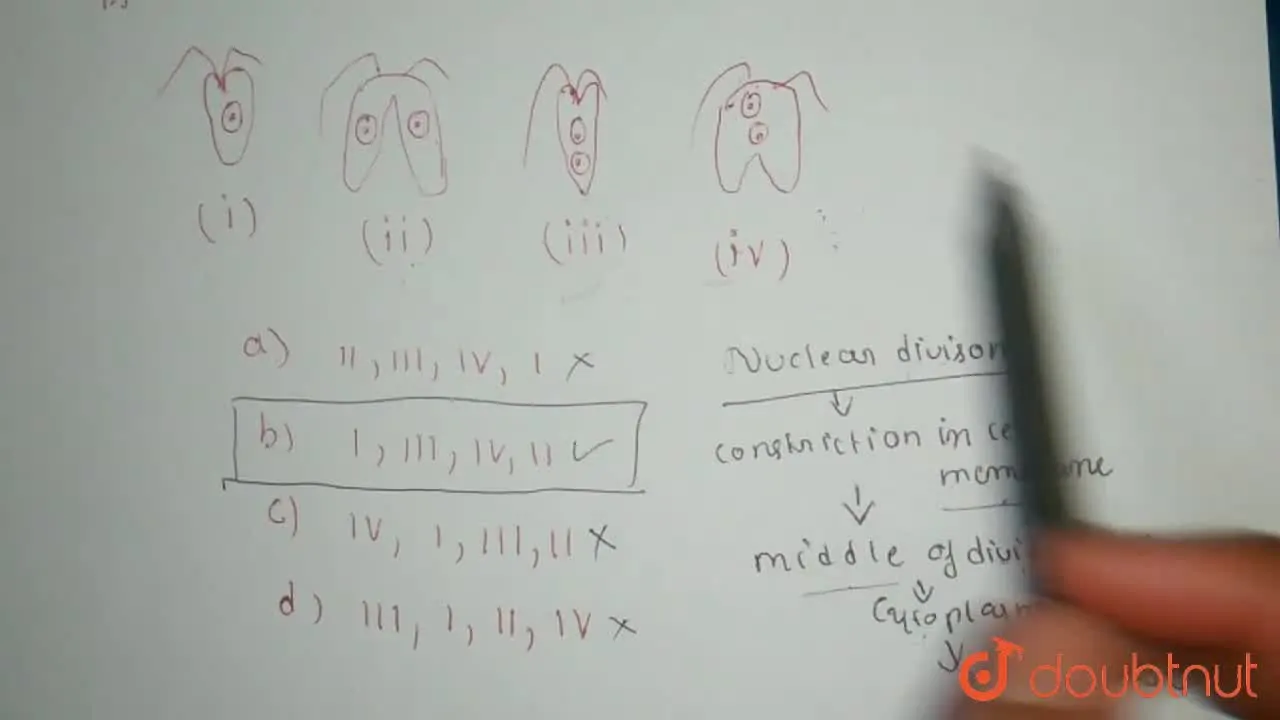 (i)
(ii)
(iii)
(iv)
a) II, III, IV, I ×
b) I, III, IV, II ✓
c) IV, I, III, II ×
d) III, I, II, IV ×
Nuclear divison
↓
constriction in
membrane
↓
middle of
↓
↓
doubtnut